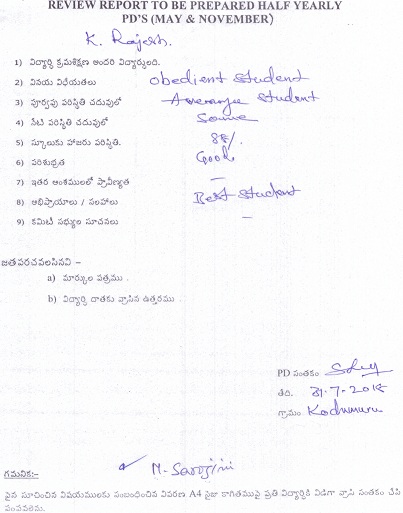 REVIEW REPORT TO BE PREPARED HALF YEARLY
PD'S (MAY & NOVEMBER)
K. Rajesh.
1) విద్యార్థి క్రమశిక్షణ అందరి విద్యార్థులది.
2) వినయ విధేయతలు obedient Student
3) పూర్వపు పరిస్థితి చదువులో Student
4) నేటి పరిస్థితి చదువులో Same
5) స్కూలుకు హాజరు పరిస్థితి.
6) పరిశుభ్రత Good
7) ఇతర అంశములలో ప్రావీణ్యత –
8) అభిప్రాయాలు / సలహాలు Best Student
9) కమిటి సభ్యుల సూచనలు –
జతపరచవలసినవి –
a) మార్కుల పత్రము .
b) విద్యార్థి దాతకు వ్రాసిన ఉత్తరము .
PD సంతకం
తేది. 31-7-2018
గ్రామం Kodumuru
M. Sarojini
గమనిక:–
పైన సూచించిన విషయములకు సంబంధించిన వివరణ A4 సైజు కాగితముపై ప్రతి విద్యార్థికి విడిగా వ్రాసి సంతకం చేసి
పంపవలెను.